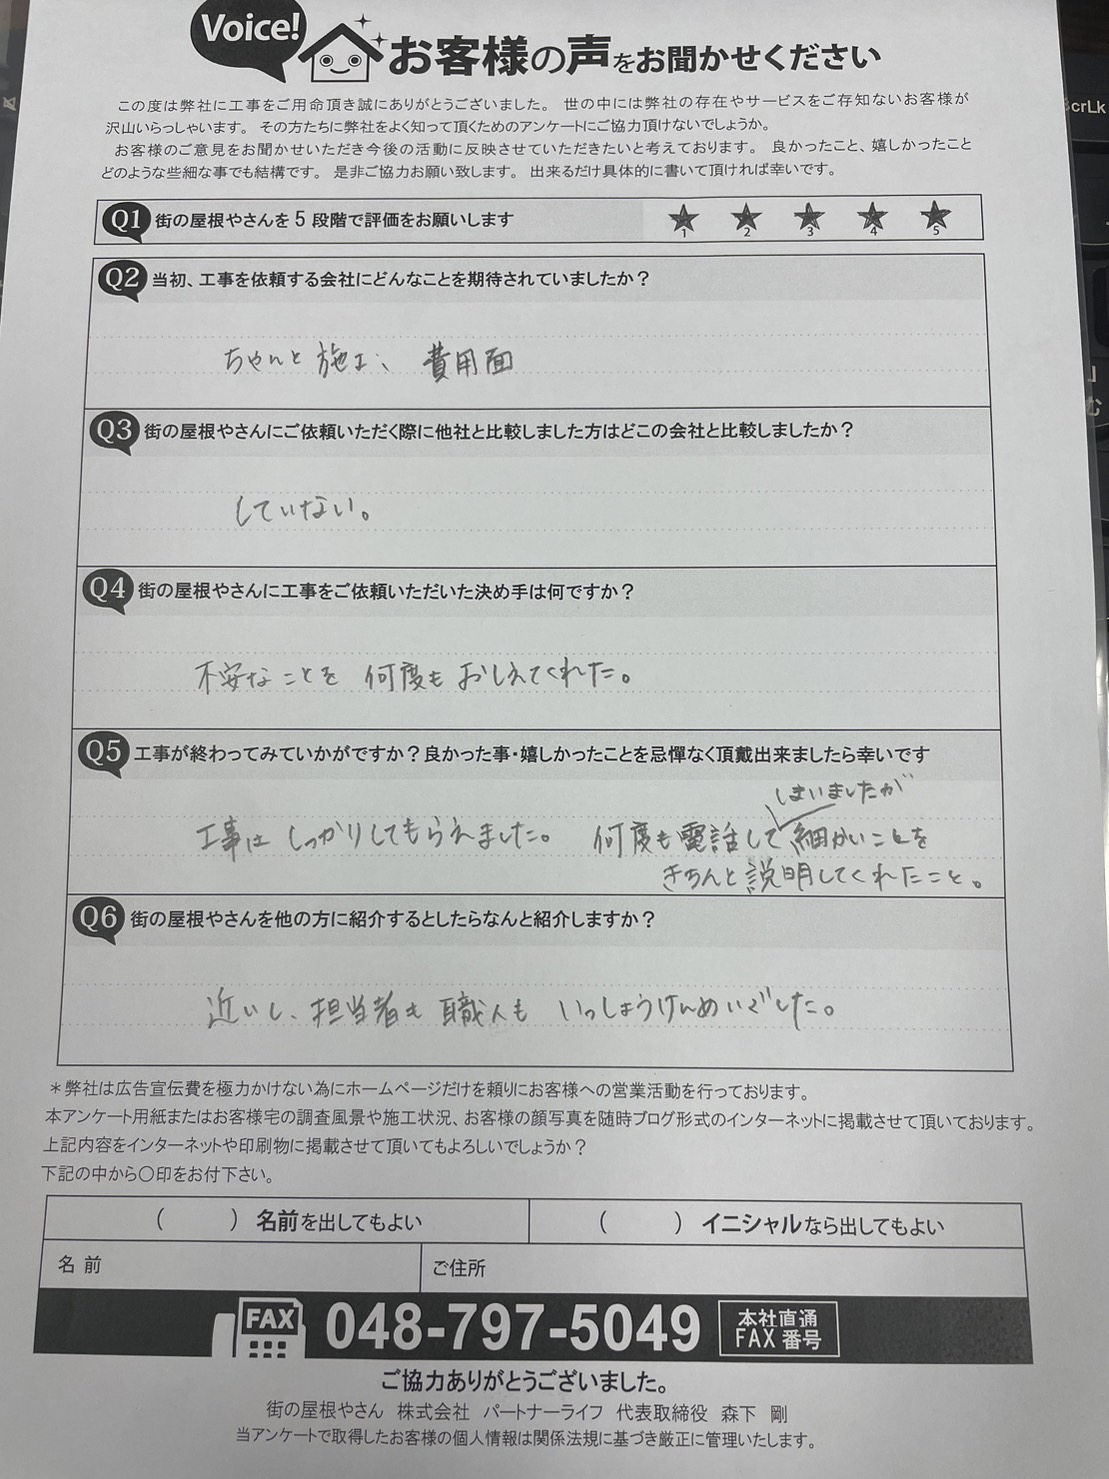 Voice!
お客様の声をお聞かせください
この度は弊社に工事をご用命頂き誠にありがとうございました。 世の中には弊社の存在やサービスをご存知ないお客様が
沢山いらっしゃいます。 その方たちに弊社をよく知って頂くためのアンケートにご協力頂けないでしょうか。
お客様のご意見をお聞かせいただき今後の活動に反映させていただきたいと考えております。 良かったこと、嬉しかったこと
どのような些細な事でも結構です。 是非ご協力お願い致します。 出来るだけ具体的に書いて頂ければ幸いです。
Q1 街の屋根やさんを5段階で評価をお願いします ★ ★ ★ ★ ★
1 2 3 4 5
Q2 当初、工事を依頼する会社にどんなことを期待されていましたか？
ちゃんと施工、 費用面
Q3 街の屋根やさんにご依頼いただく際に他社と比較しました方はどこの会社と比較しましたか？
していない。
Q4 街の屋根やさんに工事をご依頼いただいた決め手は何ですか？
不安なことを 何度も おしえてくれた。
Q5 工事が終わってみていかがですか？良かった事・嬉しかったことを忌憚なく頂戴出来ましたら幸いです
しまいましたが
工事は しっかりしてもらえました。 何度も電話して 細かいことを
きちんと説明してくれたこと。
Q6 街の屋根やさんを他の方に紹介するとしたらなんと紹介しますか？
近いし、担当者も 職人も いっしょうけんめいでした。
＊弊社は広告宣伝費を極力かけない為にホームページだけを頼りにお客様への営業活動を行っております。
本アンケート用紙またはお客様宅の調査風景や施工状況、お客様の顔写真を随時ブログ形式のインターネットに掲載させて頂いております。
上記内容をインターネットや印刷物に掲載させて頂いてもよろしいでしょうか？
下記の中から〇印をお付下さい。
（　　）名前を出してもよい （　　）イニシャルなら出してもよい
名 前 ご住所
FAX 048-797-5049 本社直通
FAX 番号
ご協力ありがとうございました。
街の屋根やさん 株式会社 パートナーライフ 代表取締役 森下 剛
当アンケートで取得したお客様の個人情報は関係法規に基づき厳正に管理いたします。
crLk
む